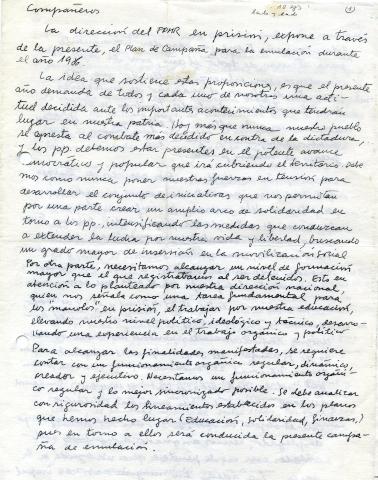 Compañeros
①
La dirección del FPMR en prisión, expone a través
de la presente, el Plan de Campaña para la emulación durante
el año 1986
La idea que sostiene esta proposición, es que el presente
año demanda de todos y cada uno de nosotros una acti-
tud decidida ante los importantes acontecimientos que tendrán
lugar en nuestra patria. Hoy más que nunca nuestro pueblo
se apresta al combate más decidido en contra de la dictadura,
y los pp. debemos estar presentes en el potente avance
democrático y popular que irá cubriendo el territorio. Debe
mos como nunca poner nuestras fuerzas en tensión para
desarrollar el conjunto de iniciativas que nos permitan
por una parte crear un amplio arco de solidaridad en
torno a los pp., intensificando las medidas que conduzcan
a extender la lucha por nuestra vida y libertad, buscando
un grado mayor de inserción en la movilización social
Por otra parte, necesitamos alcanzar un nivel de formación
mayor que el que registrábamos al ser detenidos. Esto en
atención a lo planteado por nuestra dirección nacional,
quien nos señala como una tarea fundamental para
los "manolos" en prisión, el trabajar por nuestra educación,
elevando nuestro nivel político, ideológico y técnico, desarro-
llando una experiencia en el trabajo orgánico y político
Para alcanzar las finalidades manifestadas, se requiere
contar con un funcionamiento orgánico, regular, dinámico,
creador y ejecutivo. Necesitamos un funcionamiento orgáni-
co regular y lo mejor sincronizado posible. Se debe analizar
con rigurosidad los lineamientos establecidos en los planos
que hemos hecho lugar (Educación, Solidaridad, Finanzas,)
pues en torno a ellos será conducida la presente campa-
ña de emulación.